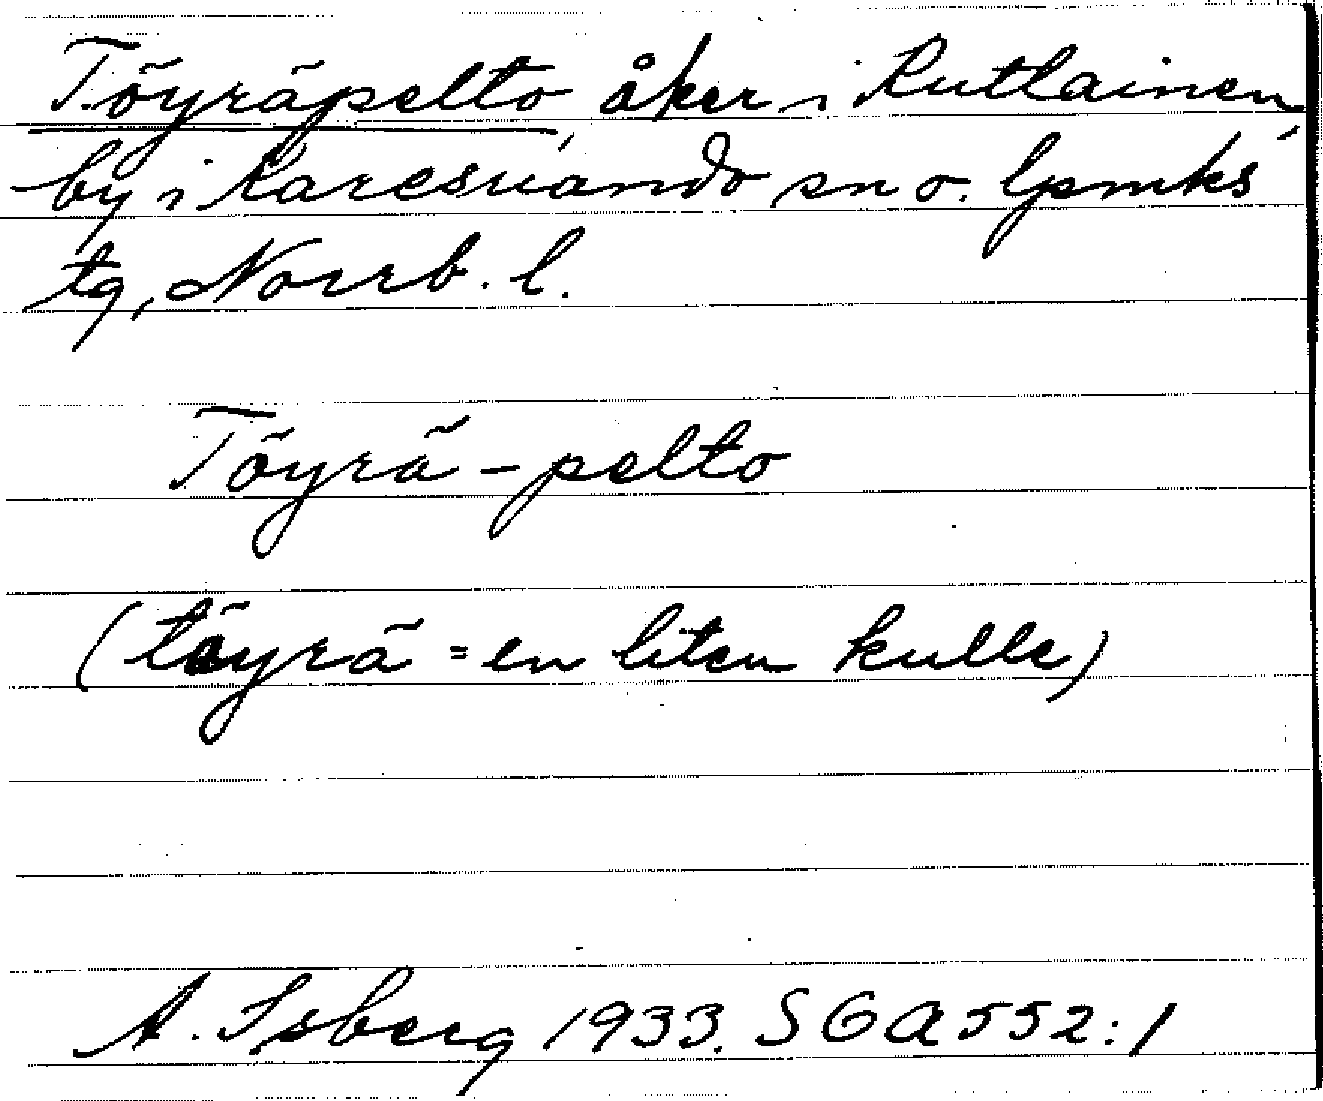 Töyräpelto, åker i Kuttainen
by i Karesuando sn o. lpmks
tg, Norrb. l.
Töyrä - pelto
(töyrä = en liten kulle)
A. Isberg 1933. SGA 552:1